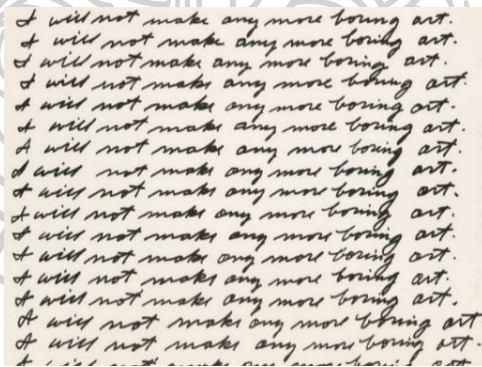 I will not make any more boring art.
I will not make any more boring art.
I will not make any more boring art.
I will not make any more boring art.
I will not make any more boring art.
I will not make any more boring art.
I will not make any more boring art.
I will not make any more boring art.
I will not make any more boring art.
I will not make any more boring art.
I will not make any more boring art.
I will not make any more boring art.
I will not make any more boring art.
I will not make any more boring art.
I will not make any more boring art
I will not make any more boring art.
I will not make any more boring art